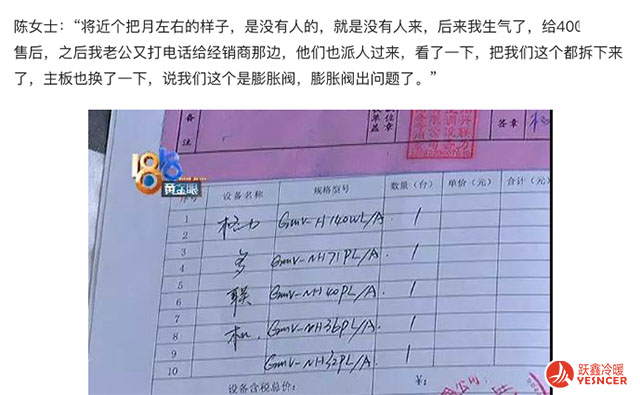 陈女士：“将近个把月左右的样子，是没有人的，就是没有人来，后来我生气了，给400
售后，之后我老公又打电话给经销商那边，他们也派人过来，看了一下，把我们这个都拆下来
了，主板也换了一下，说我们这个是膨胀阀，膨胀阀出问题了。”
备注
签章
1818
黄金眼
设备名称 规格型号 数量（台） 单价（元） 合计（元）
1
2 格力 GMV-H140WL/A 1
3
4 多 GMV-NH71PL/A 1
5
6 联 GMV-NH40PL/A 1
7
8 机 GMV-NH36PL/A 1
9
10 GMV-NH32PL/A 1
设备含税总价： ¥：
跃鑫冷暖
YESNCER